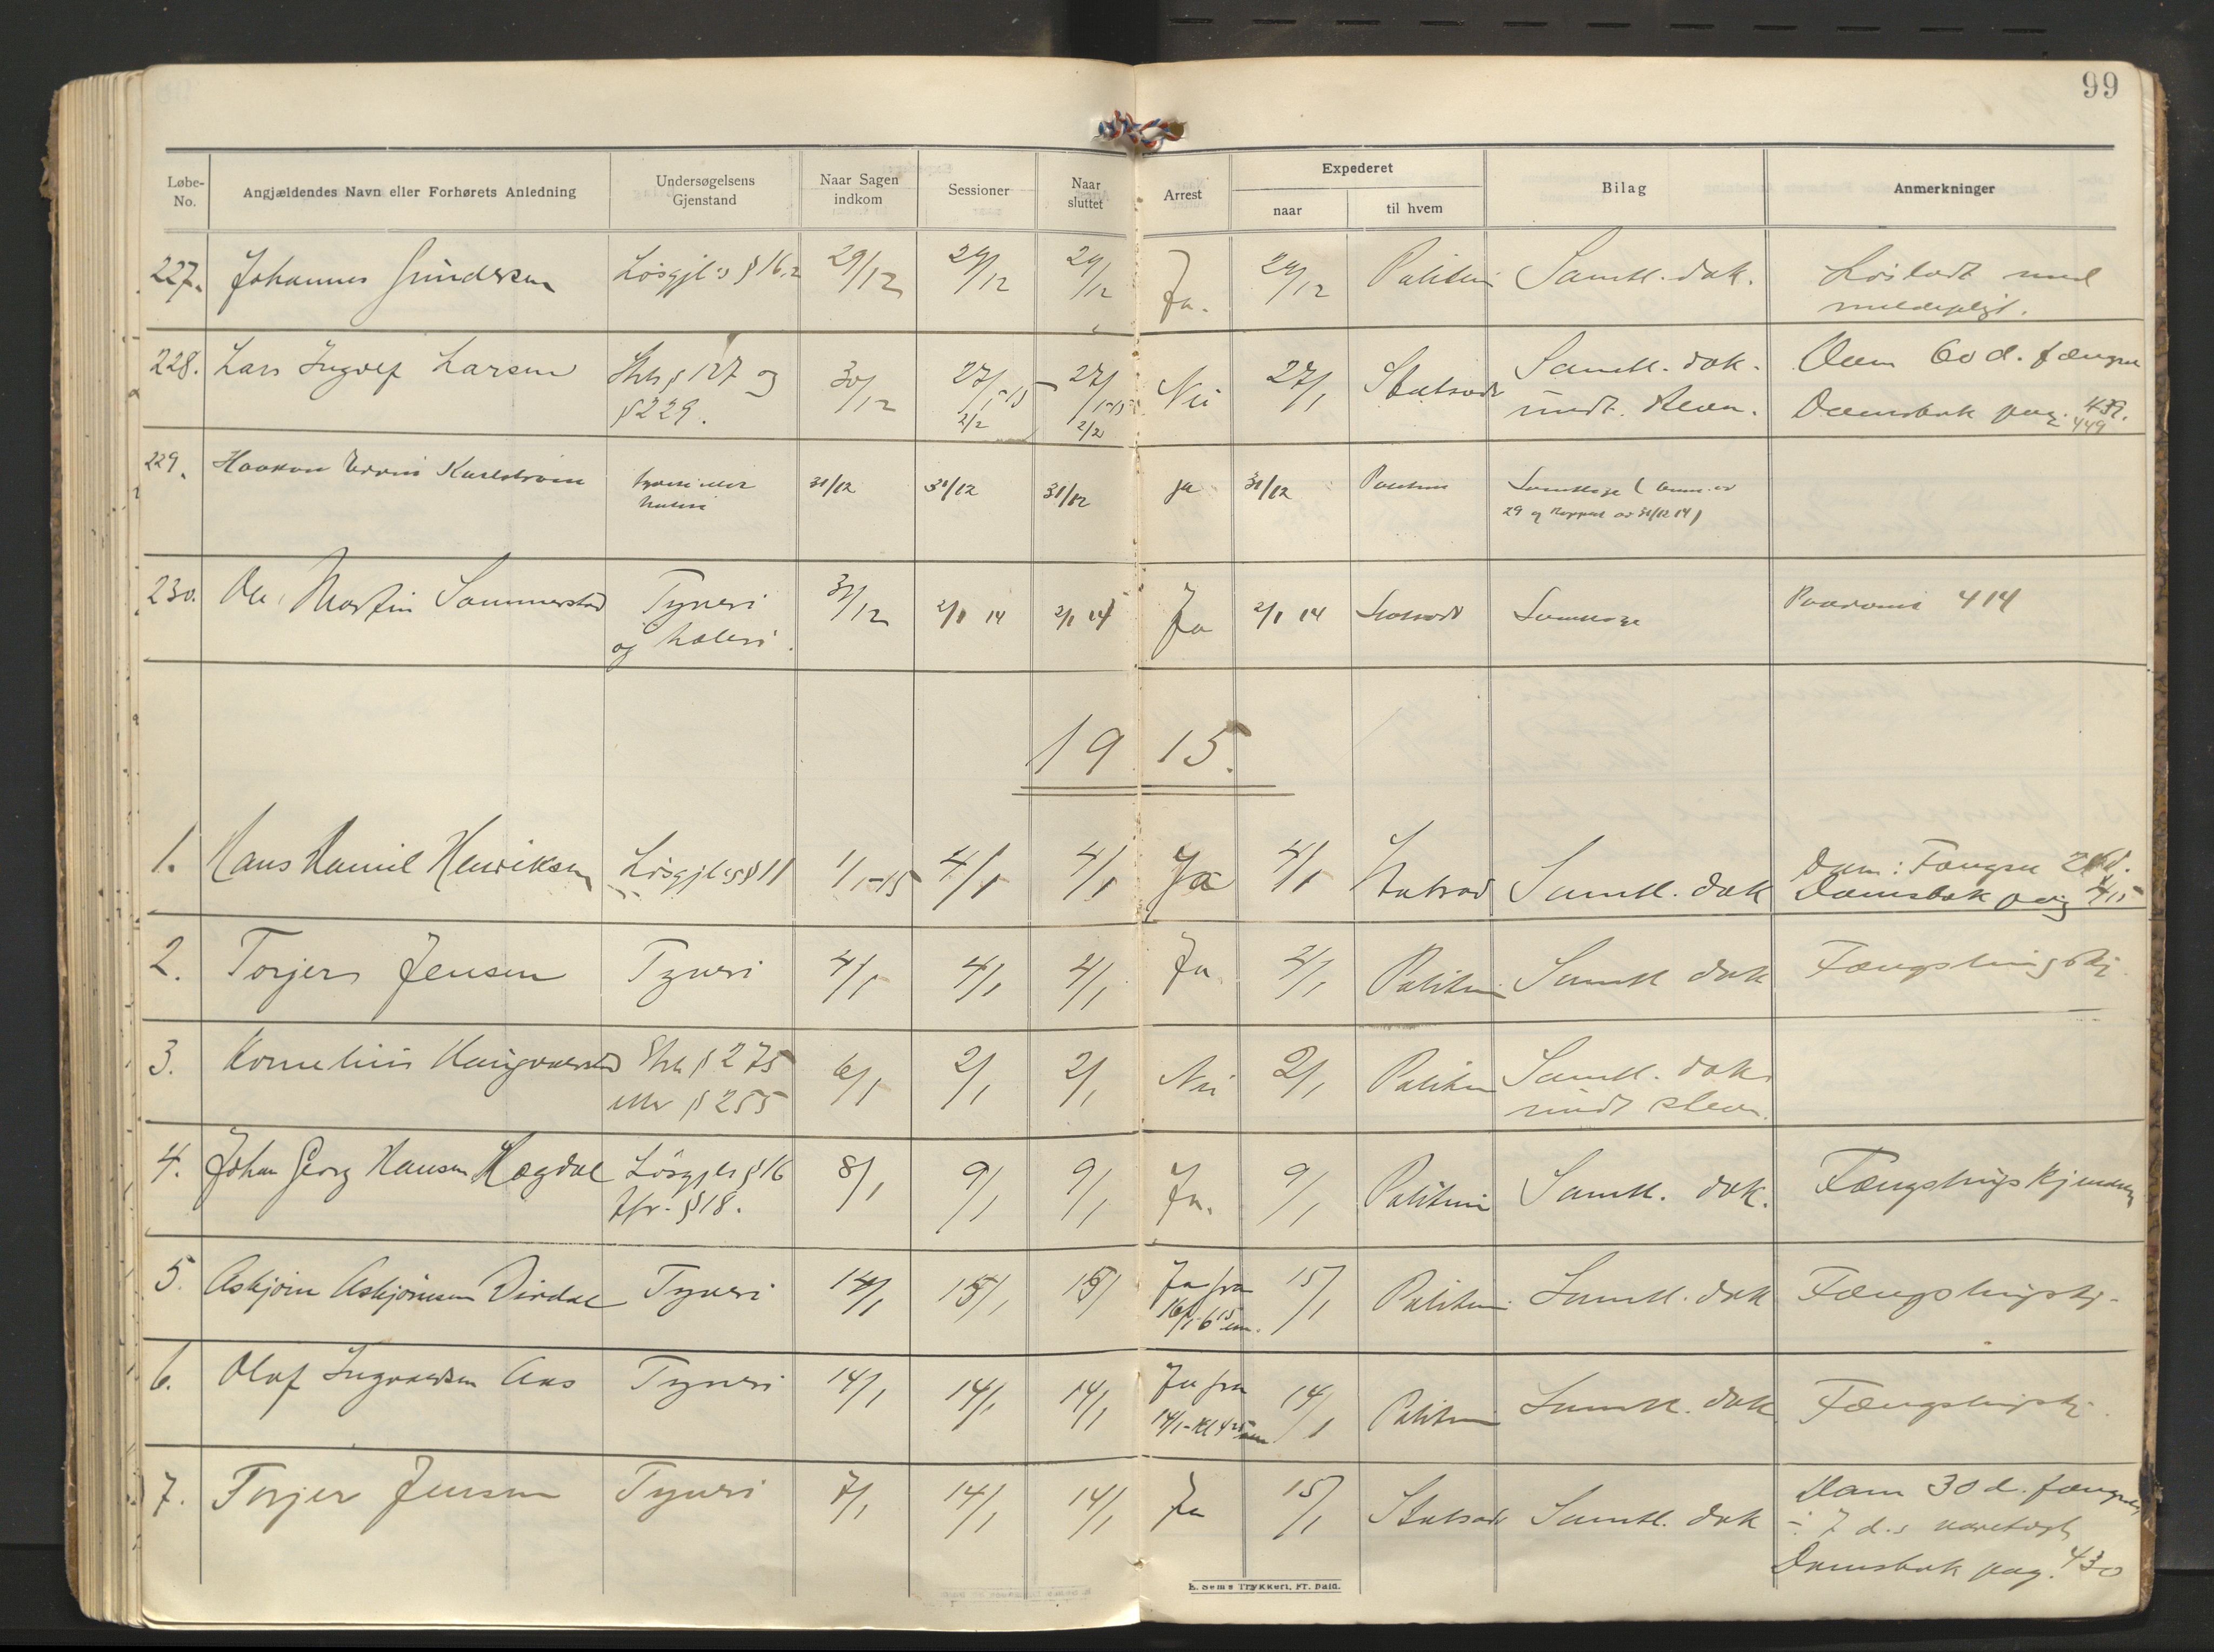 99
Løbe-No. Angjældendes Navn eller Forhørets Anledning Undersøgelsens Gjenstand Naar Sagen indkom Sessioner Naar sluttet Arrest Expederet naar til hvem Bilag Anmerkninger
227. Johannes Gundersen Løsgjl's § 16,2 29/12 29/12 29/12 Ja. 29/12 Politiet Samtl. dok. Løsladt med
meldepligt.
228. Lars Ingolf Larsen Strl. § 127 og 30/12 27/1-15 27/1-15 Nei 27/1 Statsadv Samtl. dok. Dom 60 d. fængsel
§ 229. 2/2 2/2 undt. stevn. Domsbok pag. 439.
449
229. Haakon Edvin Karlstrøm tyveri eller 31/12 31/12 31/12 ja 31/12 Politiet Samtlige
heleri 29 og Rapport av 31/12 14)
230. Ole Martin Sommerstad Tyveri 31/12 2/1 14 2/1 14 Ja 2/1 14 Statsadv Samtlige Paadømt 414
og heleri.
1915.
1. Hans Kamil Henriksen Løsgjl's § 11 1/1-15 4/1 4/1 Ja 4/1 Statsad Samtl. dok Dom: Fængsel
Domsbok pag 415
2. Torjer Jensen Tyveri 4/1 4/1 4/1 Ja 4/1 Politiet Samtl dok Fængslingskj.
3. Kornelius Strl § 275 6/1 2/1 2/1 Nei 2/1 Politiet Samtl. dok
eller § 255 undt stevn.
4. Johan Georg Hansen Hægdal Løsgjls § 16 8/1 9/1 9/1 Ja. 9/1 Politiet Samtl. dok. Fængslingskjendelse
Jfr. § 18.
5. Askjørn Askjørnsen Dirdal Tyveri 14/1 15/1 15/1 Ja fra 15/1 Politiet Samtl. dok Fængslingskj.
16/1 6 15 em.
6. Olaf Ingvaldsen Aas Tyveri 14/1 14/1 14/1 Ja fra 14/1 Politiet Samtl. dok Fængslingskj.
14/1-Kl 4 25 em
7. Torjer Jensen Tyveri 7/1 14/1 14/1 Ja 15/1 Statsadv Samtl. dok Dom 30 d. fængsel,
÷ 7 d.s varetægt
Domsbok pag. 430
E. Sems Trykkeri, Fr. Hald.